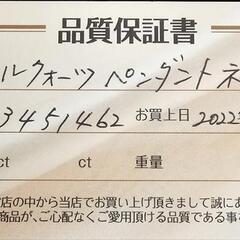 品質保証書
ルクォーツ ペンダントネ
3451462 お買上日 2022
ct ct 重量
店の中から当店でお買い上げ頂きまして誠にあ
商品が、ご心配なくご愛用頂ける品質である事を